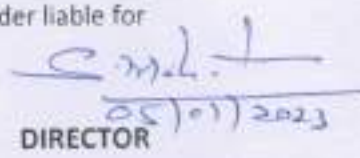 der liable for
05/01/2023
DIRECTOR